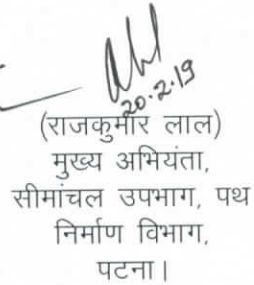 20.2.19
(राजकुमार लाल)
मुख्य अभियंता,
सीमांचल उपभाग, पथ
निर्माण विभाग,
पटना।